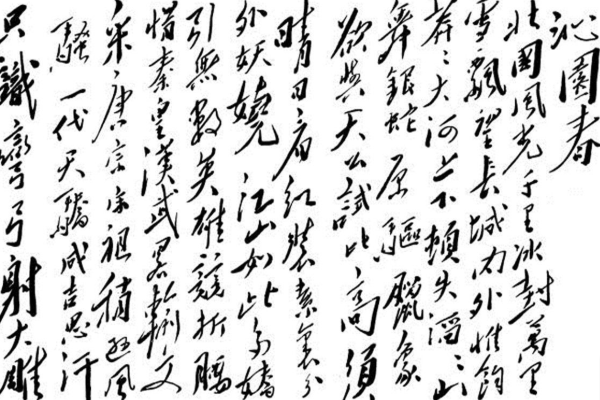 沁園春
北國風光千里冰封萬里
雪飄望長城内外惟餘
莽〻大河上下頓失滔〻山
舞銀蛇原驅臘象
欲與天公試比高須
晴日看紅裝素裹分
外妖嬈江山如此多嬌
引無數英雄競折腰
惜秦皇漢武畧輸文
采唐宗宋祖稍遜風
騷一代天驕成吉思汗
只識彎弓射大雕